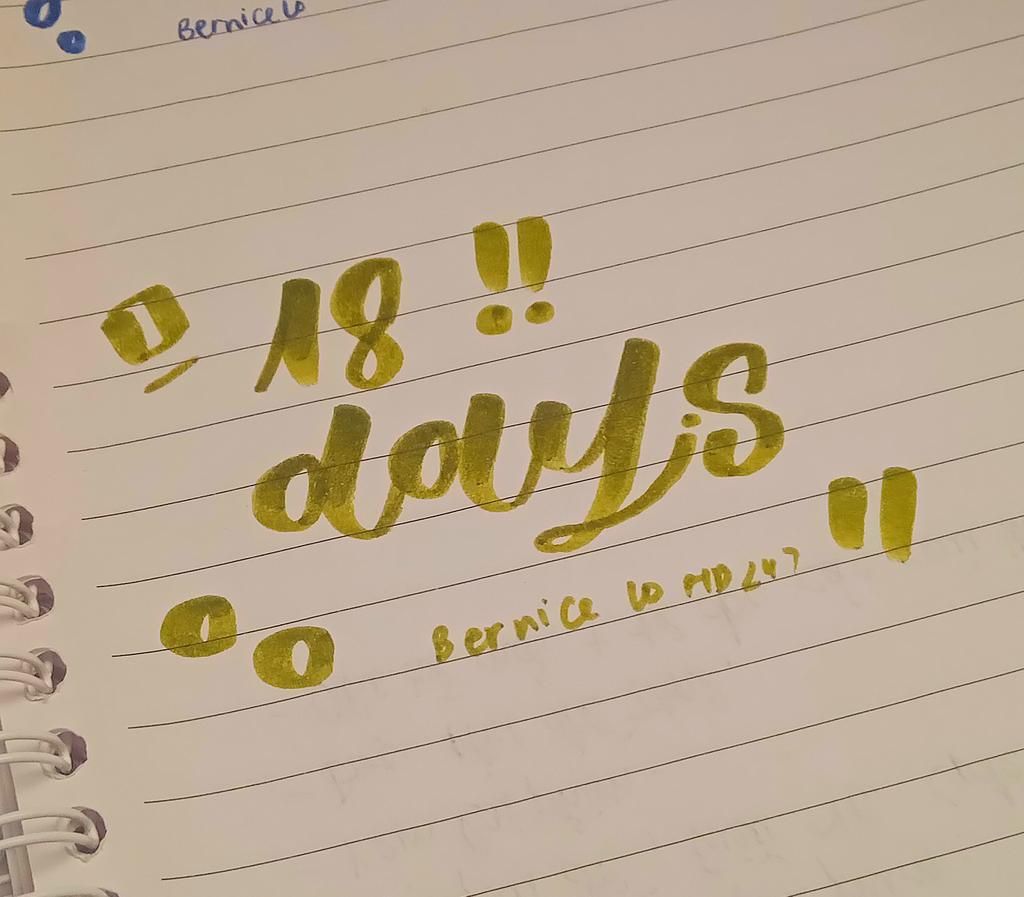 Bernice Lo
18 !!
days
Bernice Lo MD247